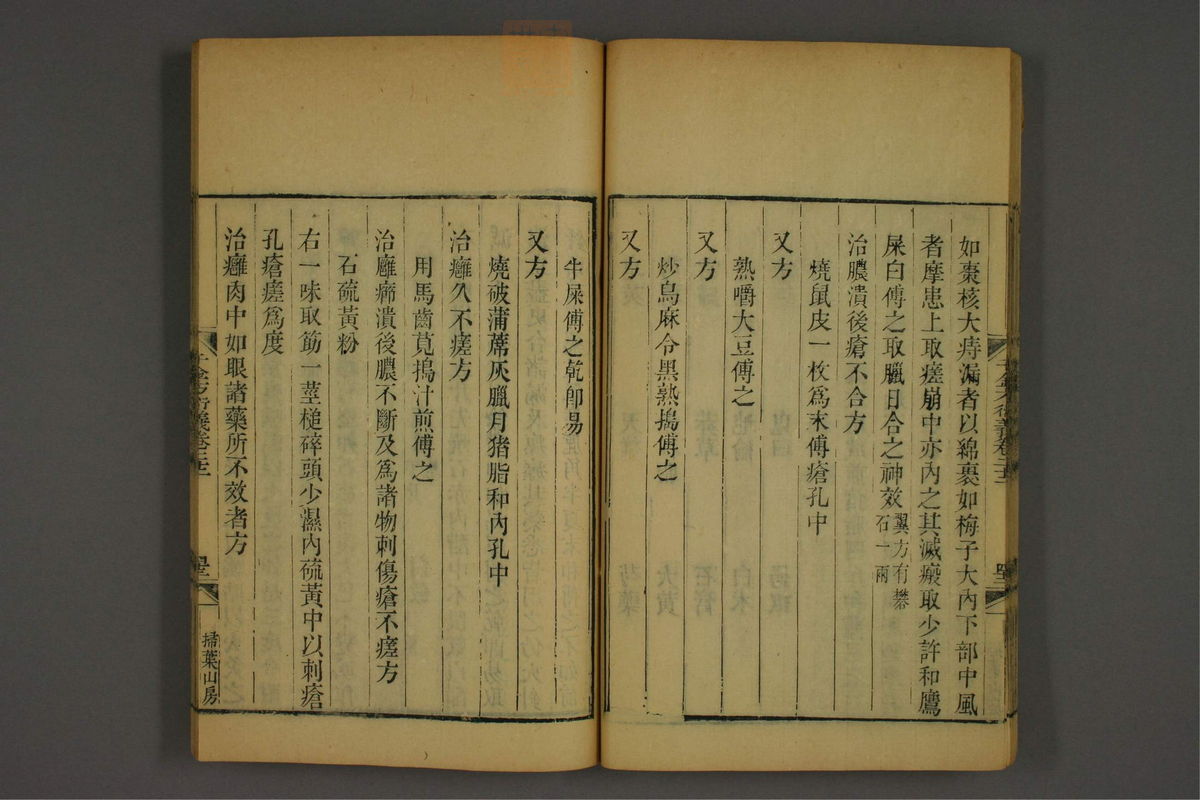 如棗核大痔漏者以綿裹如梅子大內下部中風
者摩患上取瘥崩中亦內之其滅瘢取少許和鷹
屎白傅之取臘日合之神效翼方有礬石一兩
治膿潰後瘡不合方
燒鼠皮一枚爲末傅瘡孔中
又方
熟嚼大豆傅之
又方
炒烏麻令黑熟搗傅之
又方
牛屎傅之乾即易
又方
燒破蒲蓆灰臘月猪脂和內孔中
治癰久不瘥方
用馬齒莧搗汁煎傅之
治癰癤潰後膿不斷及爲諸物刺傷瘡不瘥方
石硫黃粉
右一味取筋一莖槌碎頭少濕內硫黃中以刺瘡
孔瘡瘥爲度
治癰肉中如眼諸藥所不效者方
千金方衍義卷二十二
掃葉山房